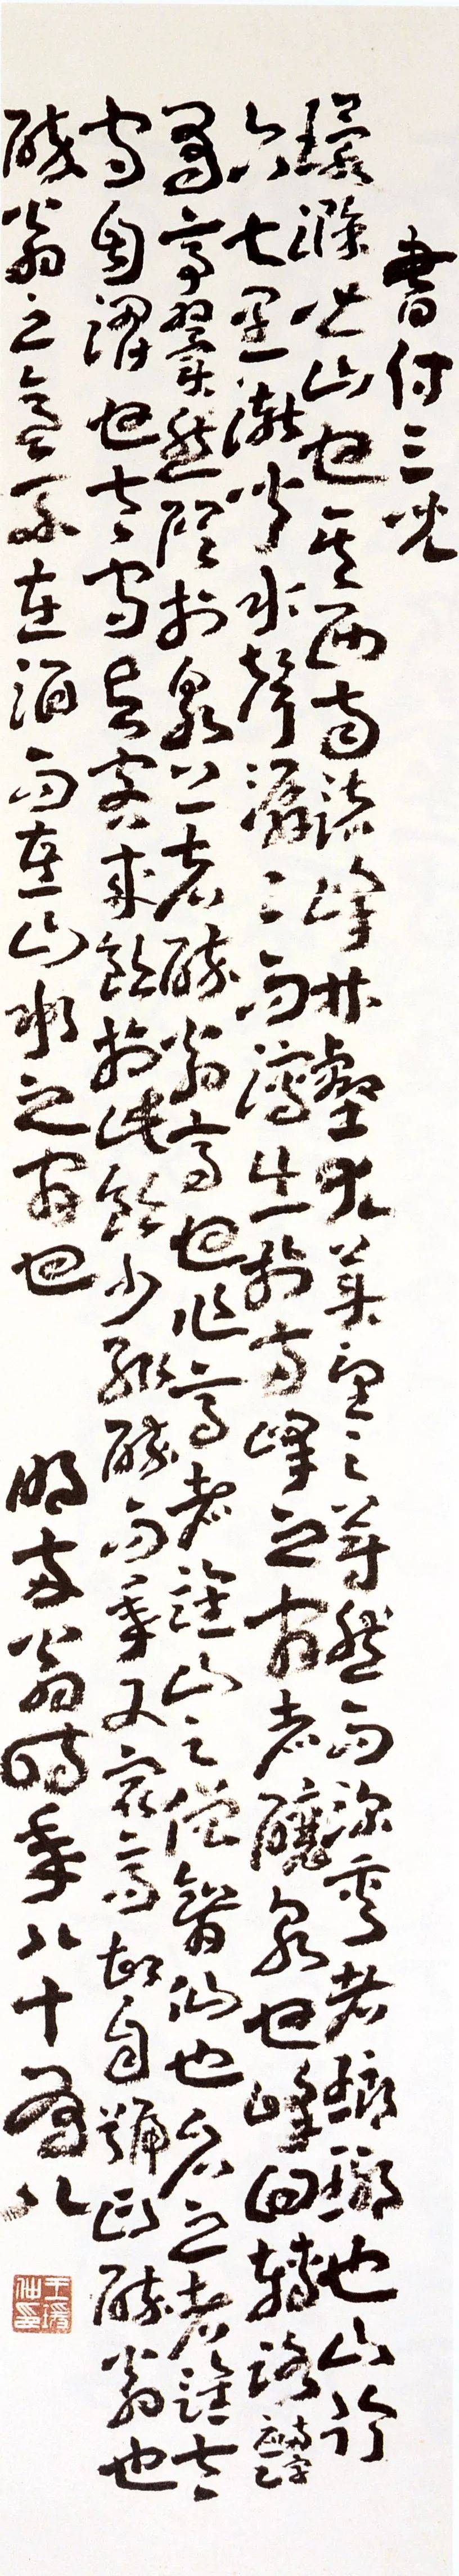 書付三兒
環滁皆山也其西南諸峰林壑尤美望之蔚然而深秀者瑯琊也山行
六七里漸聞水聲潺々而瀉出於兩峰之間者釀泉也峰回轉路
有亭翼然臨於泉上者醉翁亭也作亭者誰山之僧智仙也名之者誰太
守自謂也太守與客來飲於此飲少輒醉而年又最高故自號曰醉翁也
醉翁之意不在酒而在山水之間也 明兩翁時年八十有八
王瑗仲印